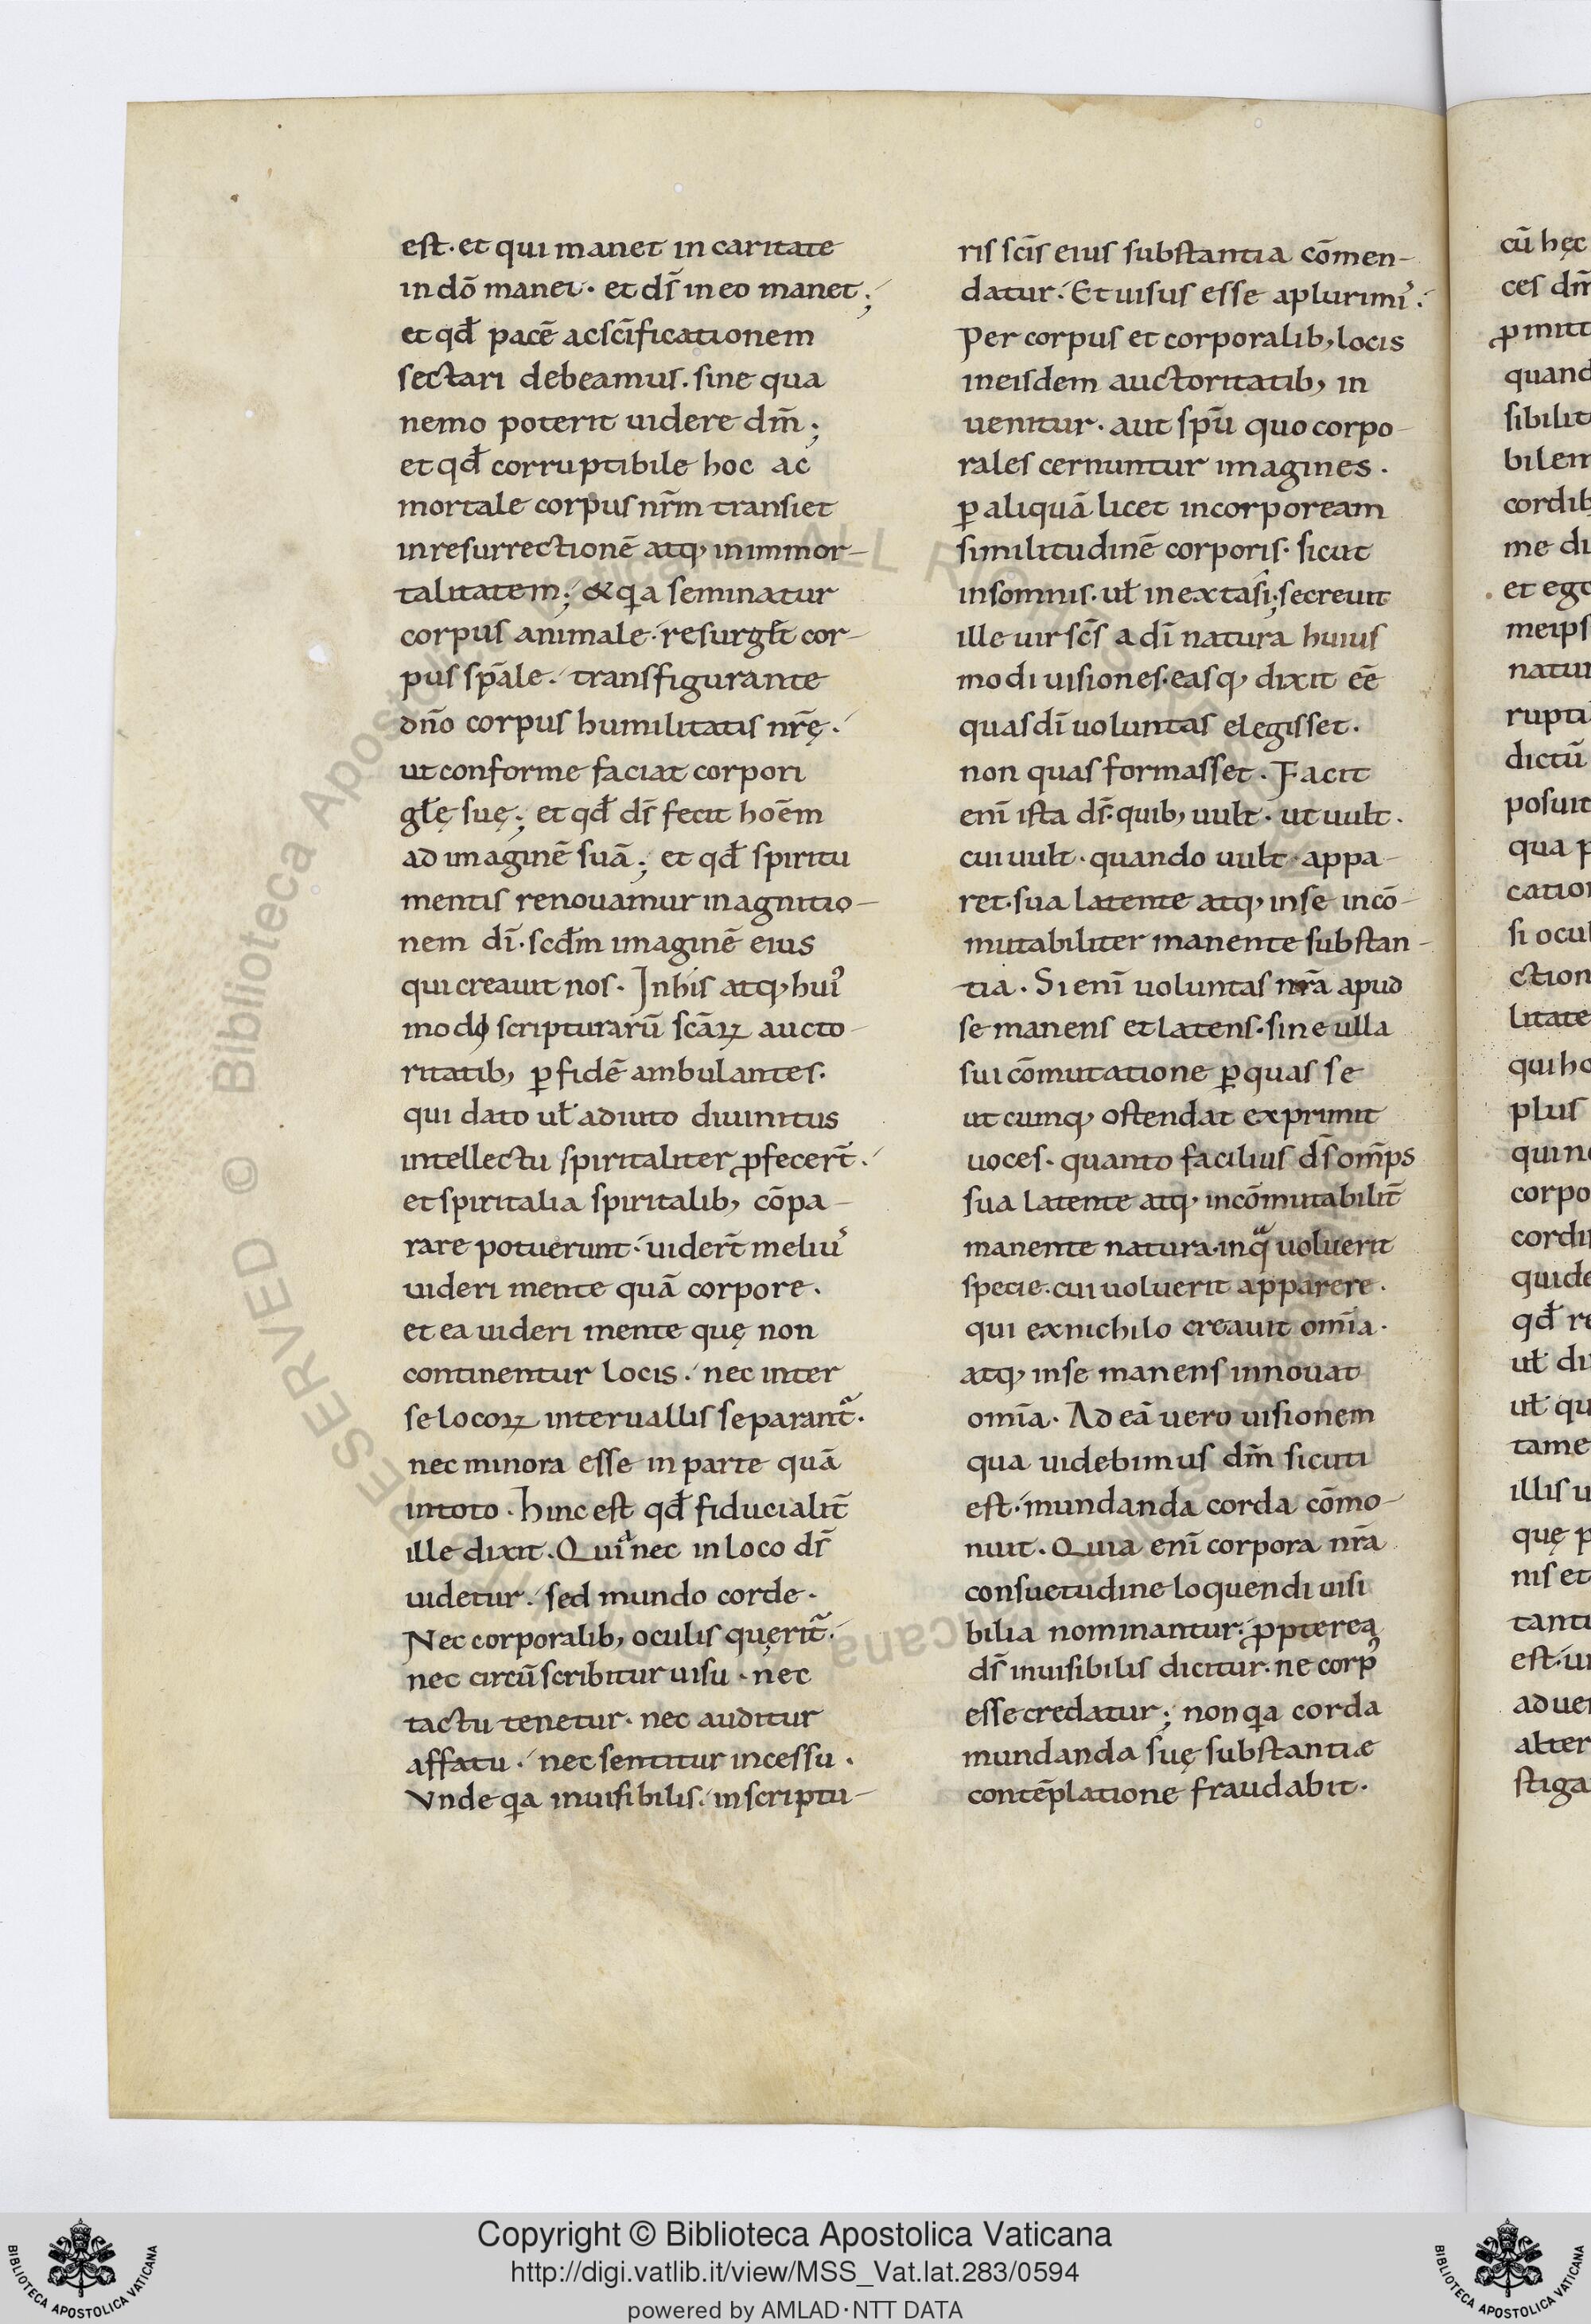 est · et qui manet in caritate
in dō manet · et ds̄ in eo manet ;
et qđ pacē ac scīficationem
sectari debeamus . sine qua
nemo poterit uidere dm̄ ;
et qđ corruptibile hoc ac
mortale corpus nr̄m transiet
in resurrectionē atq; in immor-
talitatem ; & qa seminatur
corpus animale · resurgł& cor-
pus spāle . transfigurante
dn̄o corpus humilitatis nr̄ę .
ut conforme faciat corpori
glę̄ suę ; et qđ ds̄ fecit hoēm
ad imaginē suā ; et qđ spiritu
mentis renouamur in agnitio-
nem dī · scđm imaginē eius
qui creauit nos · In his atq; hui᾽
modi scripturarū scāꝝ aucto-
ritatib; ꝑ fidē ambulantes .
qui dato uł adiuto diuinitus
intellectu spiritaliter ꝓfecer̄t .
et spiritalia spiritalib; cōpa-
rare potuerunt · uider̄t meliu᾽
uideri mente quā corpore .
et ea uideri mente quę non
continentur locis . nec inter
se locoꝝ interuallis separant᷑ .
nec minora esse in parte quā
in toto . hinc est qđ fiducialit̄
ille dixit . Quia nec in loco ds̄
uidetur . sed mundo corde .
Nec corporalib; oculis quęrit᷑ .
nec circūscribitur uisu . nec
tactu tenetur . nec auditur
affatu . nec sentitur incessu .
Vnde qa inuisibilis . in scriptu-
ris scīs eius substantia cōmen-
datur . Et uisus esse a plurimi᾽ .
Per corpus et corporalib; locis
in eisdem auctoritatib; in
uenitur . aut spū quo corpo-
rales cernuntur imagines .
ꝑ aliquā licet incorpoream
similitudinē corporis . sicut
in somnis . uł in extasi ; secreuit
ille uir scs̄ a dī natura huius
modi uisiones . easq; dixit eē
quas dī uoluntas elegisset .
non quas formasset . Facit
enī ista ds̄ . quib; uult . ut uult .
cui uult . quando uult . appa-
ret . sua latente atq; in se incō-
mutabiliter manente substan-
tia . Si enī uoluntas nr̄a apud
se manens et latens . sine ulla
sui cōmutatione ꝑ quas se
ut cumq; ostendat exprimit
uoces . quanto facilius ds̄ om̄ps
sua latente atq; incōmutabilit̄
manente natura . in qa uoluerit
specie . cui uoluerit apparere .
qui ex nichilo creauit omīa .
atq; in se manens innouat
omīa . Ad eā uero uisionem
qua uidebimus dm̄ sicuti
est . mundanda corda cōmo-
nuit . Quia enī corpora nr̄a
consuetudine loquendi uisi
bilia nominantur . ꝓpterea
ds̄ inuisibilis dicitur . ne corp᾽
esse credatur ; non qa corda
mundanda suę substantiæ
contēplatione fraudabit .
cū hęc
ces dm̄
ꝓmitt
quand
sibilit
bilem
cordib
me di
et ego
meips
natur
rupti
dictū
posuit
qua p
catio
si ocul
ction
litate
qui ho
plus
qui n
corpo
cordi
quide
qđ re
uł di
uł qu
tame
illis u
quę p
nis et
tant
est . ui
aduer
alter
stiga
Copyright © Biblioteca Apostolica Vaticana
http://digi.vatlib.it/view/MSS_Vat.lat.283/0594
powered by AMLAD·NTT DATA
BIBLIOTECA APOSTOLICA VATICANA
BIBLIOTECA APOSTOLICA VATICANA